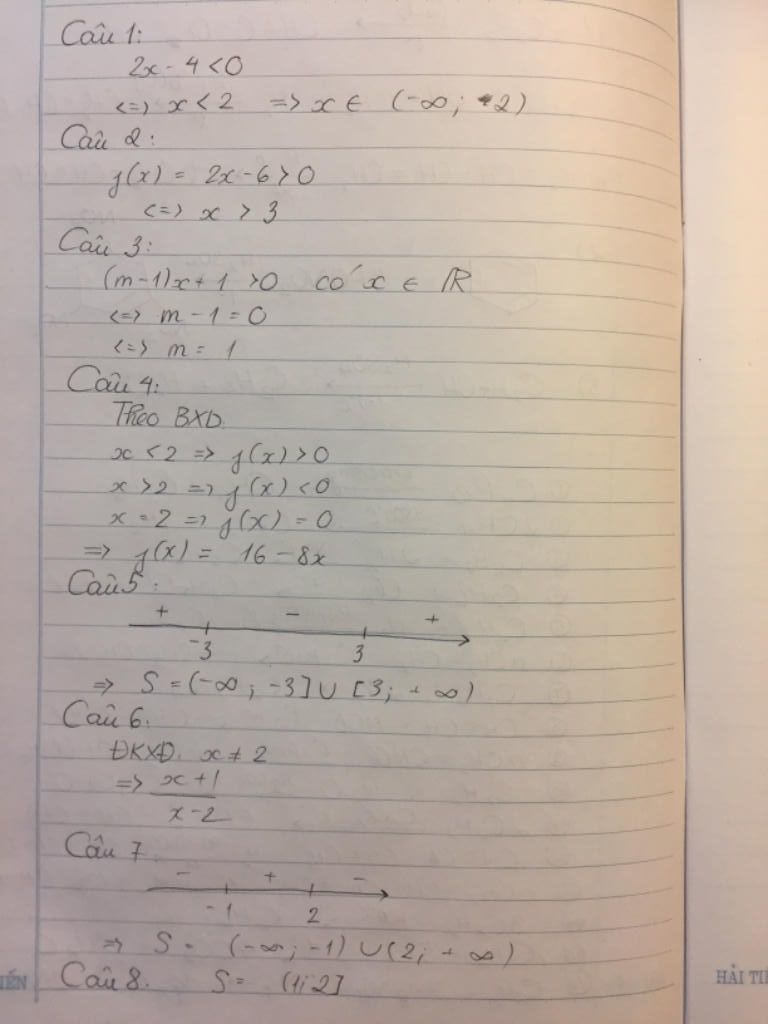 Câu 1:
2x - 4 < 0
<=> x < 2 => x ∈ (-∞; 2)
Câu 2:
f(x) = 2x - 6 > 0
<=> x > 3
Câu 3:
(m-1)x + 1 > 0 có x ∈ ℝ
<=> m - 1 = 0
<=> m = 1
Câu 4:
Theo BXD.
x < 2 => f(x) > 0
x > 2 => f(x) < 0
x = 2 => f(x) = 0
=> f(x) = 16 - 8x
Câu 5:
+ - +
-3 3
=> S = (-∞; -3] ∪ [3; +∞)
Câu 6.
ĐKXĐ. x ≠ 2
=> x + 1
x - 2
Câu 7.
- + -
-1 2
=> S = (-∞; -1) ∪ (2; +∞)
Câu 8. S = (1; 2]
HẢI TI